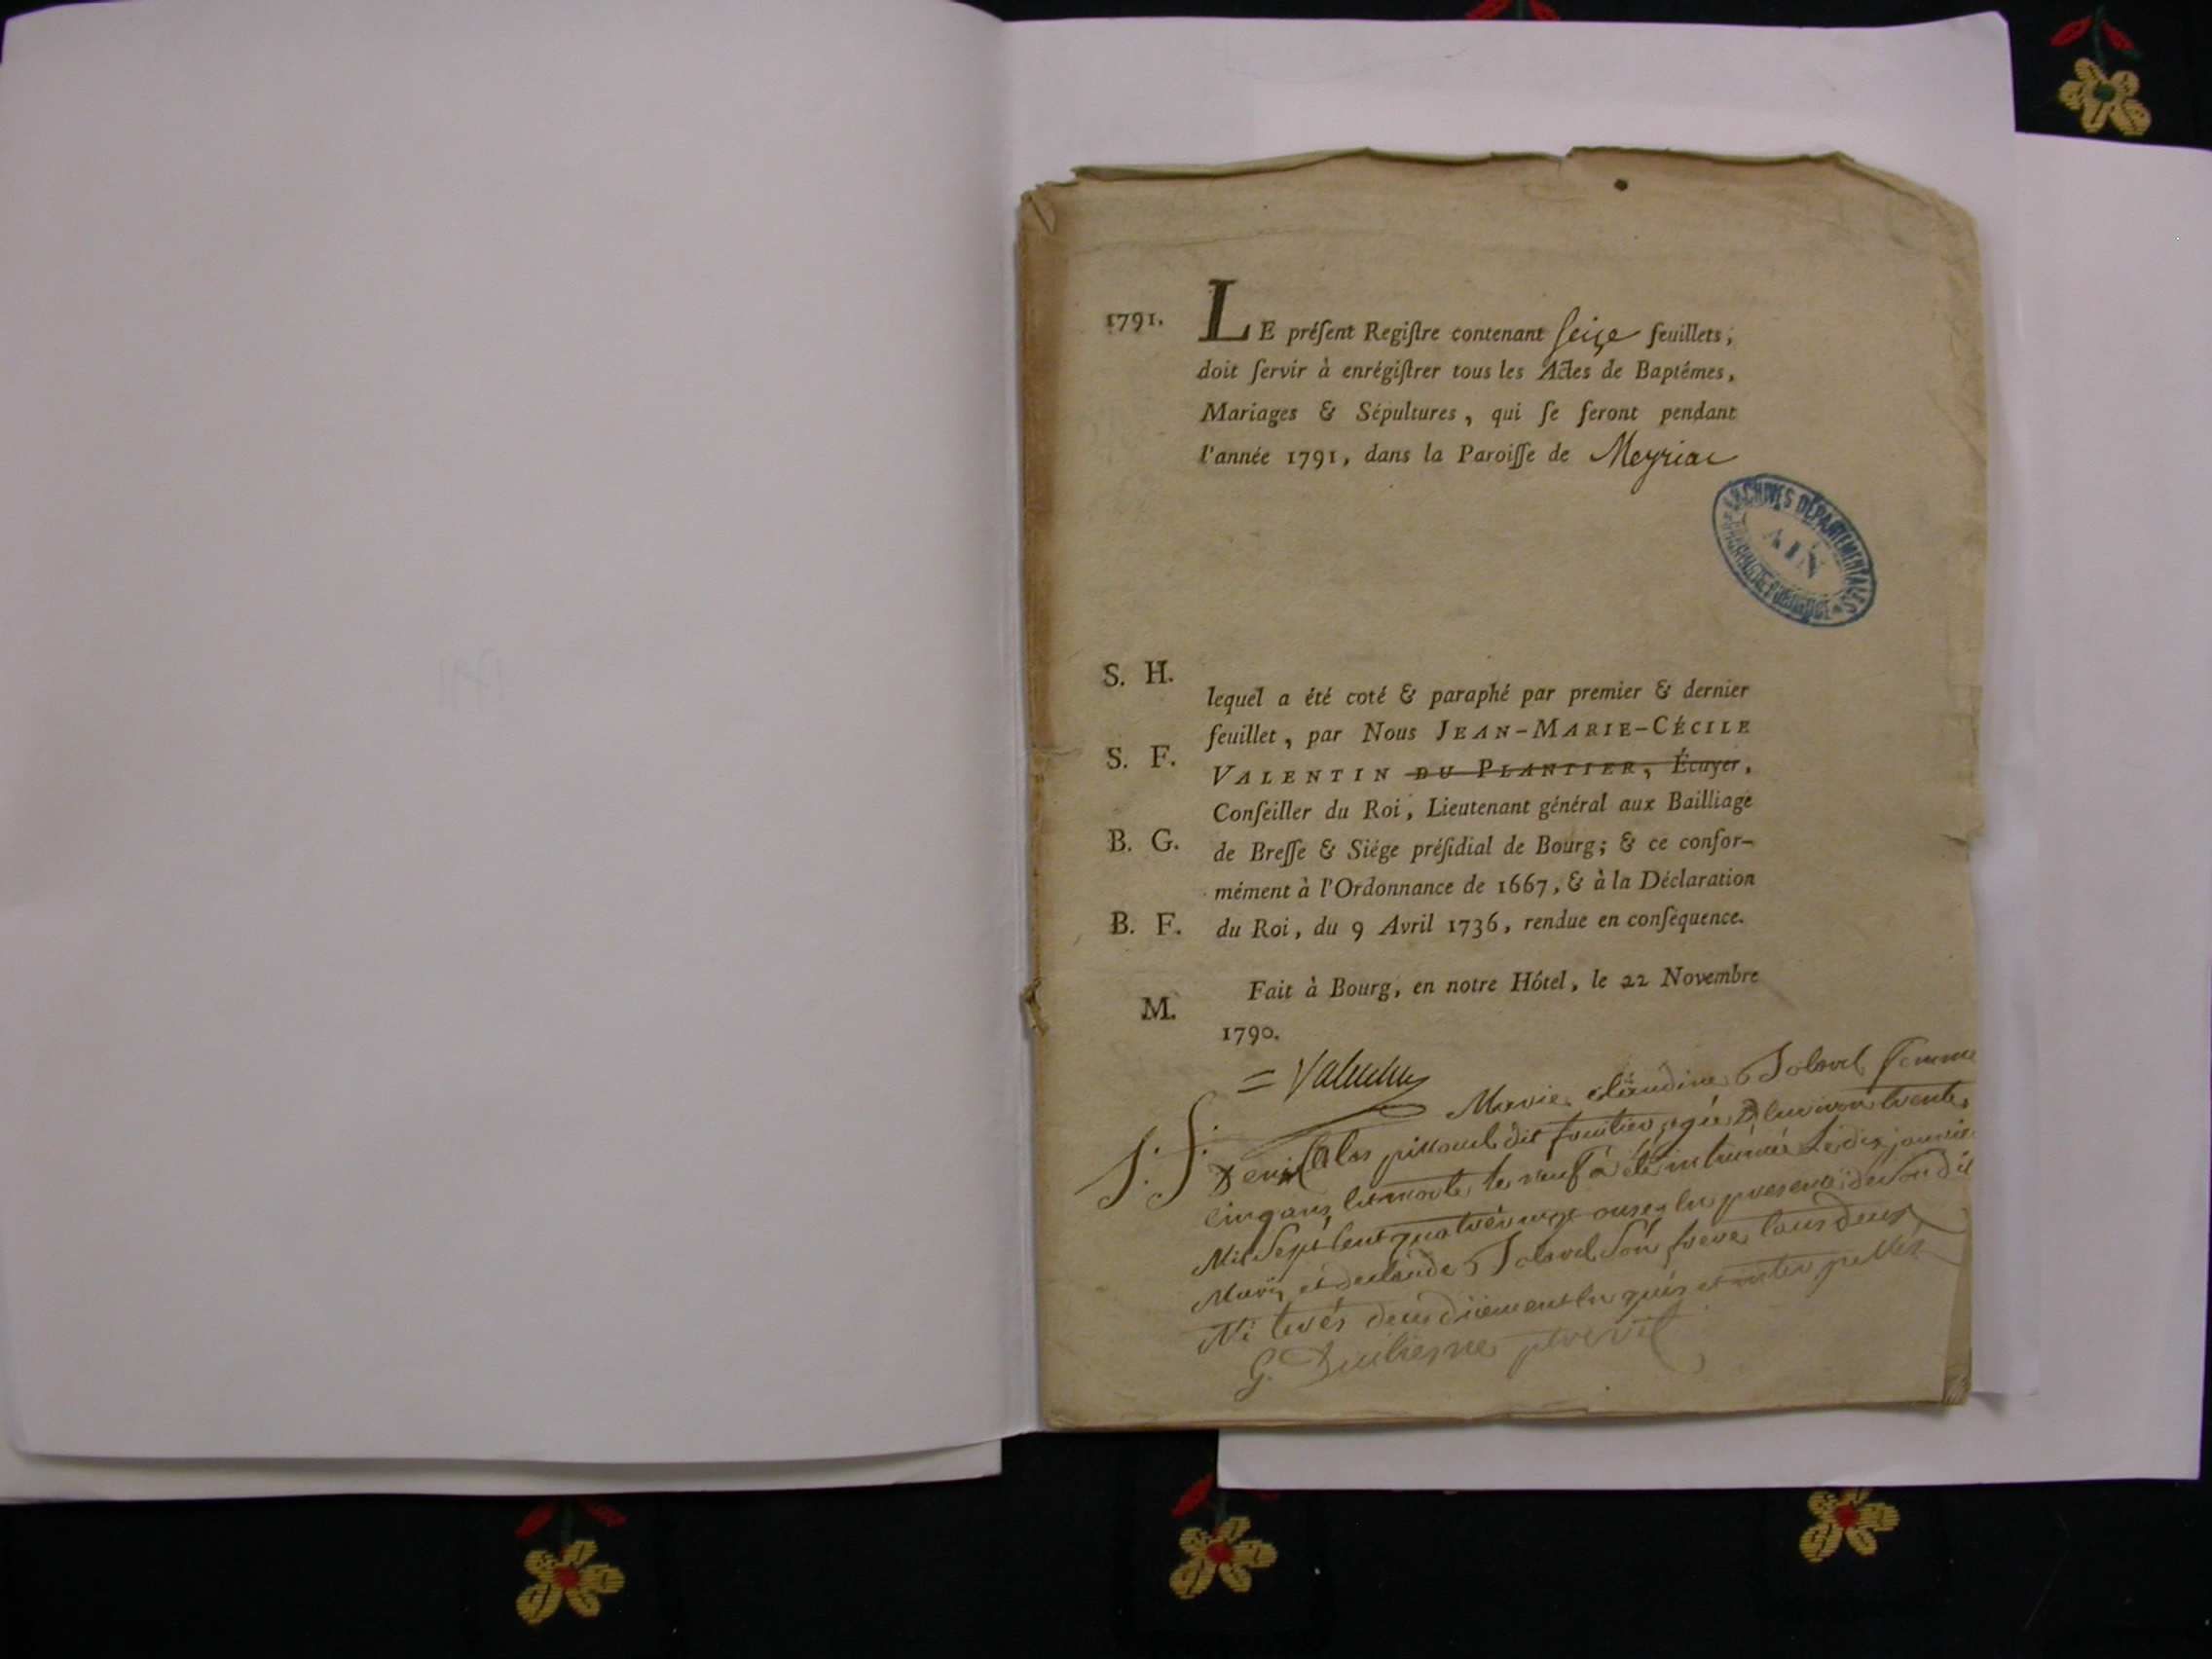 1791.
LE préſent Regiſtre contenant ſeize feuillets,
doit ſervir à enrégiſtrer tous les Actes de Baptêmes,
Mariages & Sépultures, qui ſe feront pendant
l'année 1791, dans la Paroiſſe de Meyriac
ARCHIVES DÉPARTEMENTALES
AIN
S. H.
lequel a été coté & paraphé par premier & dernier
feuillet, par Nous JEAN-MARIE-CÉCILE
S. F.
VALENTIN DU PLANTIER, Écuyer,
Conſeiller du Roi, Lieutenant général aux Bailliage
B. G.
de Breſſe & Siége préſidial de Bourg; & ce confor-
mément à l'Ordonnance de 1667, & à la Déclaration
B. F.
du Roi, du 9 Avril 1736, rendue en conſéquence.
Fait à Bourg, en notre Hôtel, le 22 Novembre
M.
1790.
= Valentin
Marie claudine femme
S. F.
dit agée trente
cinq ans, a été inhumée Le dix janvier
Mil Sept Cent quatrevingt onze, en presence de son dit
Mary, et de claude son frere tous deux
Ni tirés de ce enquis et interpellés
G.